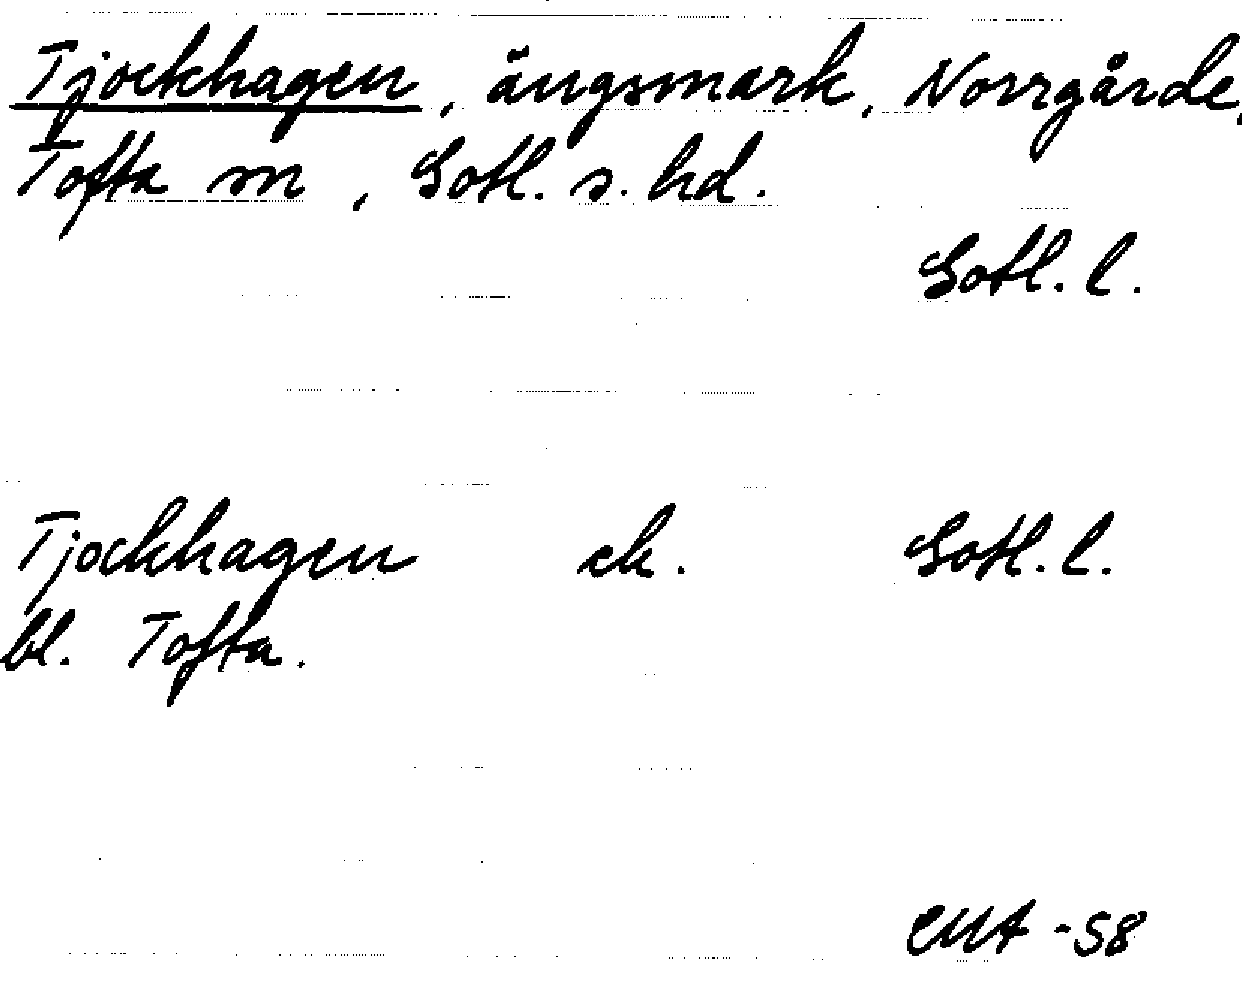 Tjockhagen, ängsmark, Norrgårde,
Tofta sn, Gotl. s. hd.
Gotl. l.
Tjockhagen ek. Gotl. l.
bl. Tofta.
CMA -58